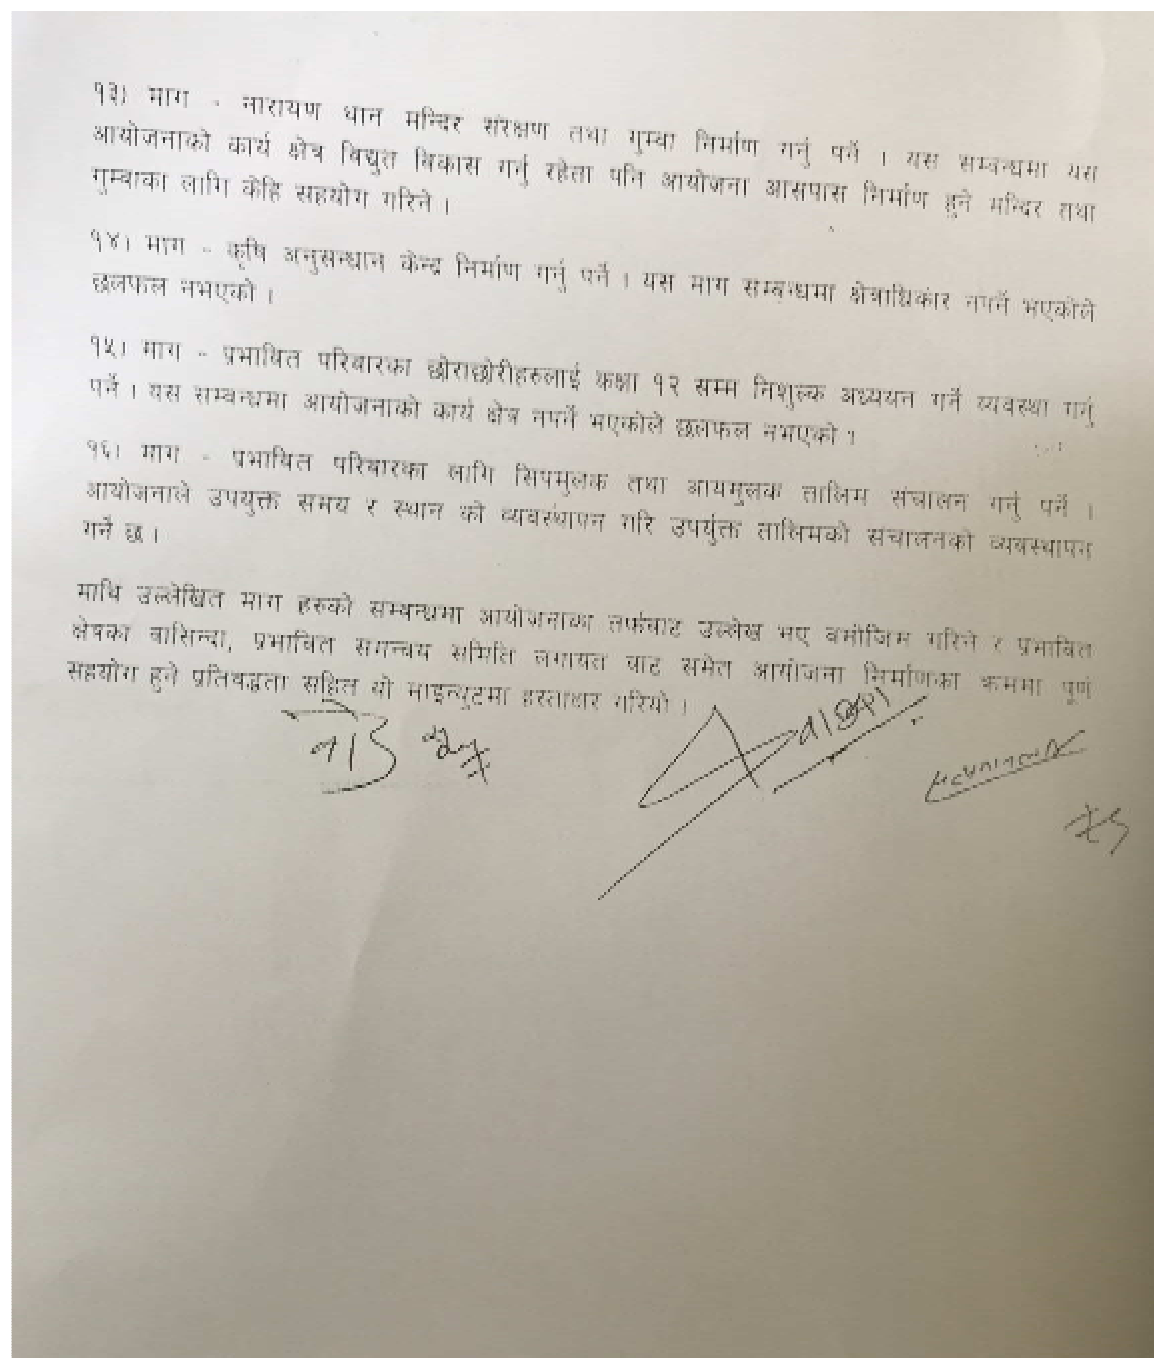 १३। माग - नारायण थान मन्दिर संरक्षण तथा गुम्बा निर्माण गर्नु पर्ने । यस सम्बन्धमा यस
आयोजनाको कार्य क्षेत्र विद्युत विकास गर्नु रहेता पनि आयोजना आसपास निर्माण हुने मन्दिर तथा
गुम्बाका लागि केहि सहयोग गरिने ।
१४। माग - कृषि अनुसन्धान केन्द्र निर्माण गर्नु पर्ने । यस माग सम्बन्धमा क्षेत्राधिकार नपर्ने भएकोले
छलफल नभएको ।
१५। माग - प्रभावित परिवारका छोराछोरीहरुलाई कक्षा १२ सम्म निशुल्क अध्ययन गर्ने व्यवस्था गर्नु
पर्ने । यस सम्बन्धमा आयोजनाको कार्य क्षेत्र नपर्ने भएकोले छलफल नभएको ।
१६। माग - प्रभावित परिवारका लागि सिपमुलक तथा आयमुलक तालिम संचालन गर्नु पर्ने ।
आयोजनाले उपयुक्त समय र स्थान को व्यवस्थापन गरि उपर्युक्त तालिमको संचालनको व्यवस्थापन
गर्ने छ ।
माथि उल्लेखित माग हरुको सम्बन्धमा आयोजनाका तर्फबाट उल्लेख भए बमोजिम गरिने र प्रभावित
क्षेत्रका बासिन्दा, प्रभावित समन्वय समिति लगायत बाट समेत आयोजना निर्माणका क्रममा पूर्ण
सहयोग हुने प्रतिबद्धता सहित यो माइन्युटमा हस्ताक्षर गरियो ।